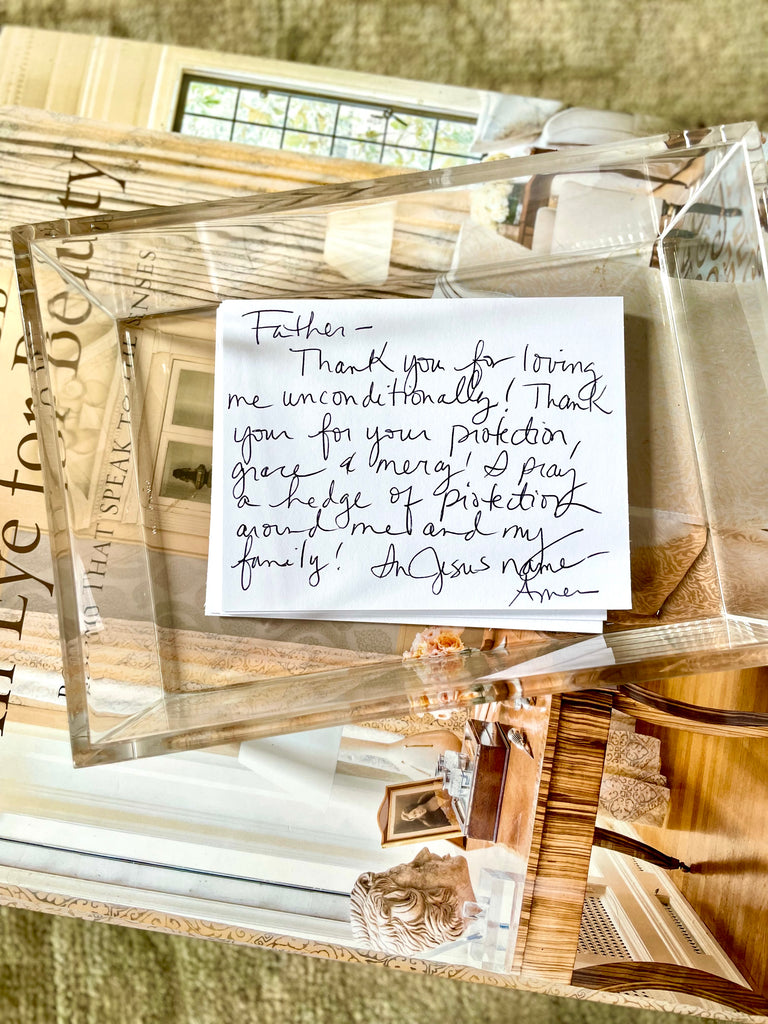 Father –
Thank you for loving
me unconditionally! Thank
your for your protection,
grace & mercy! I pray
a hedge of protection
around me and my
family! In Jesus name –
Amen
An Eye for Beauty
THAT SPEAK TO
NSES